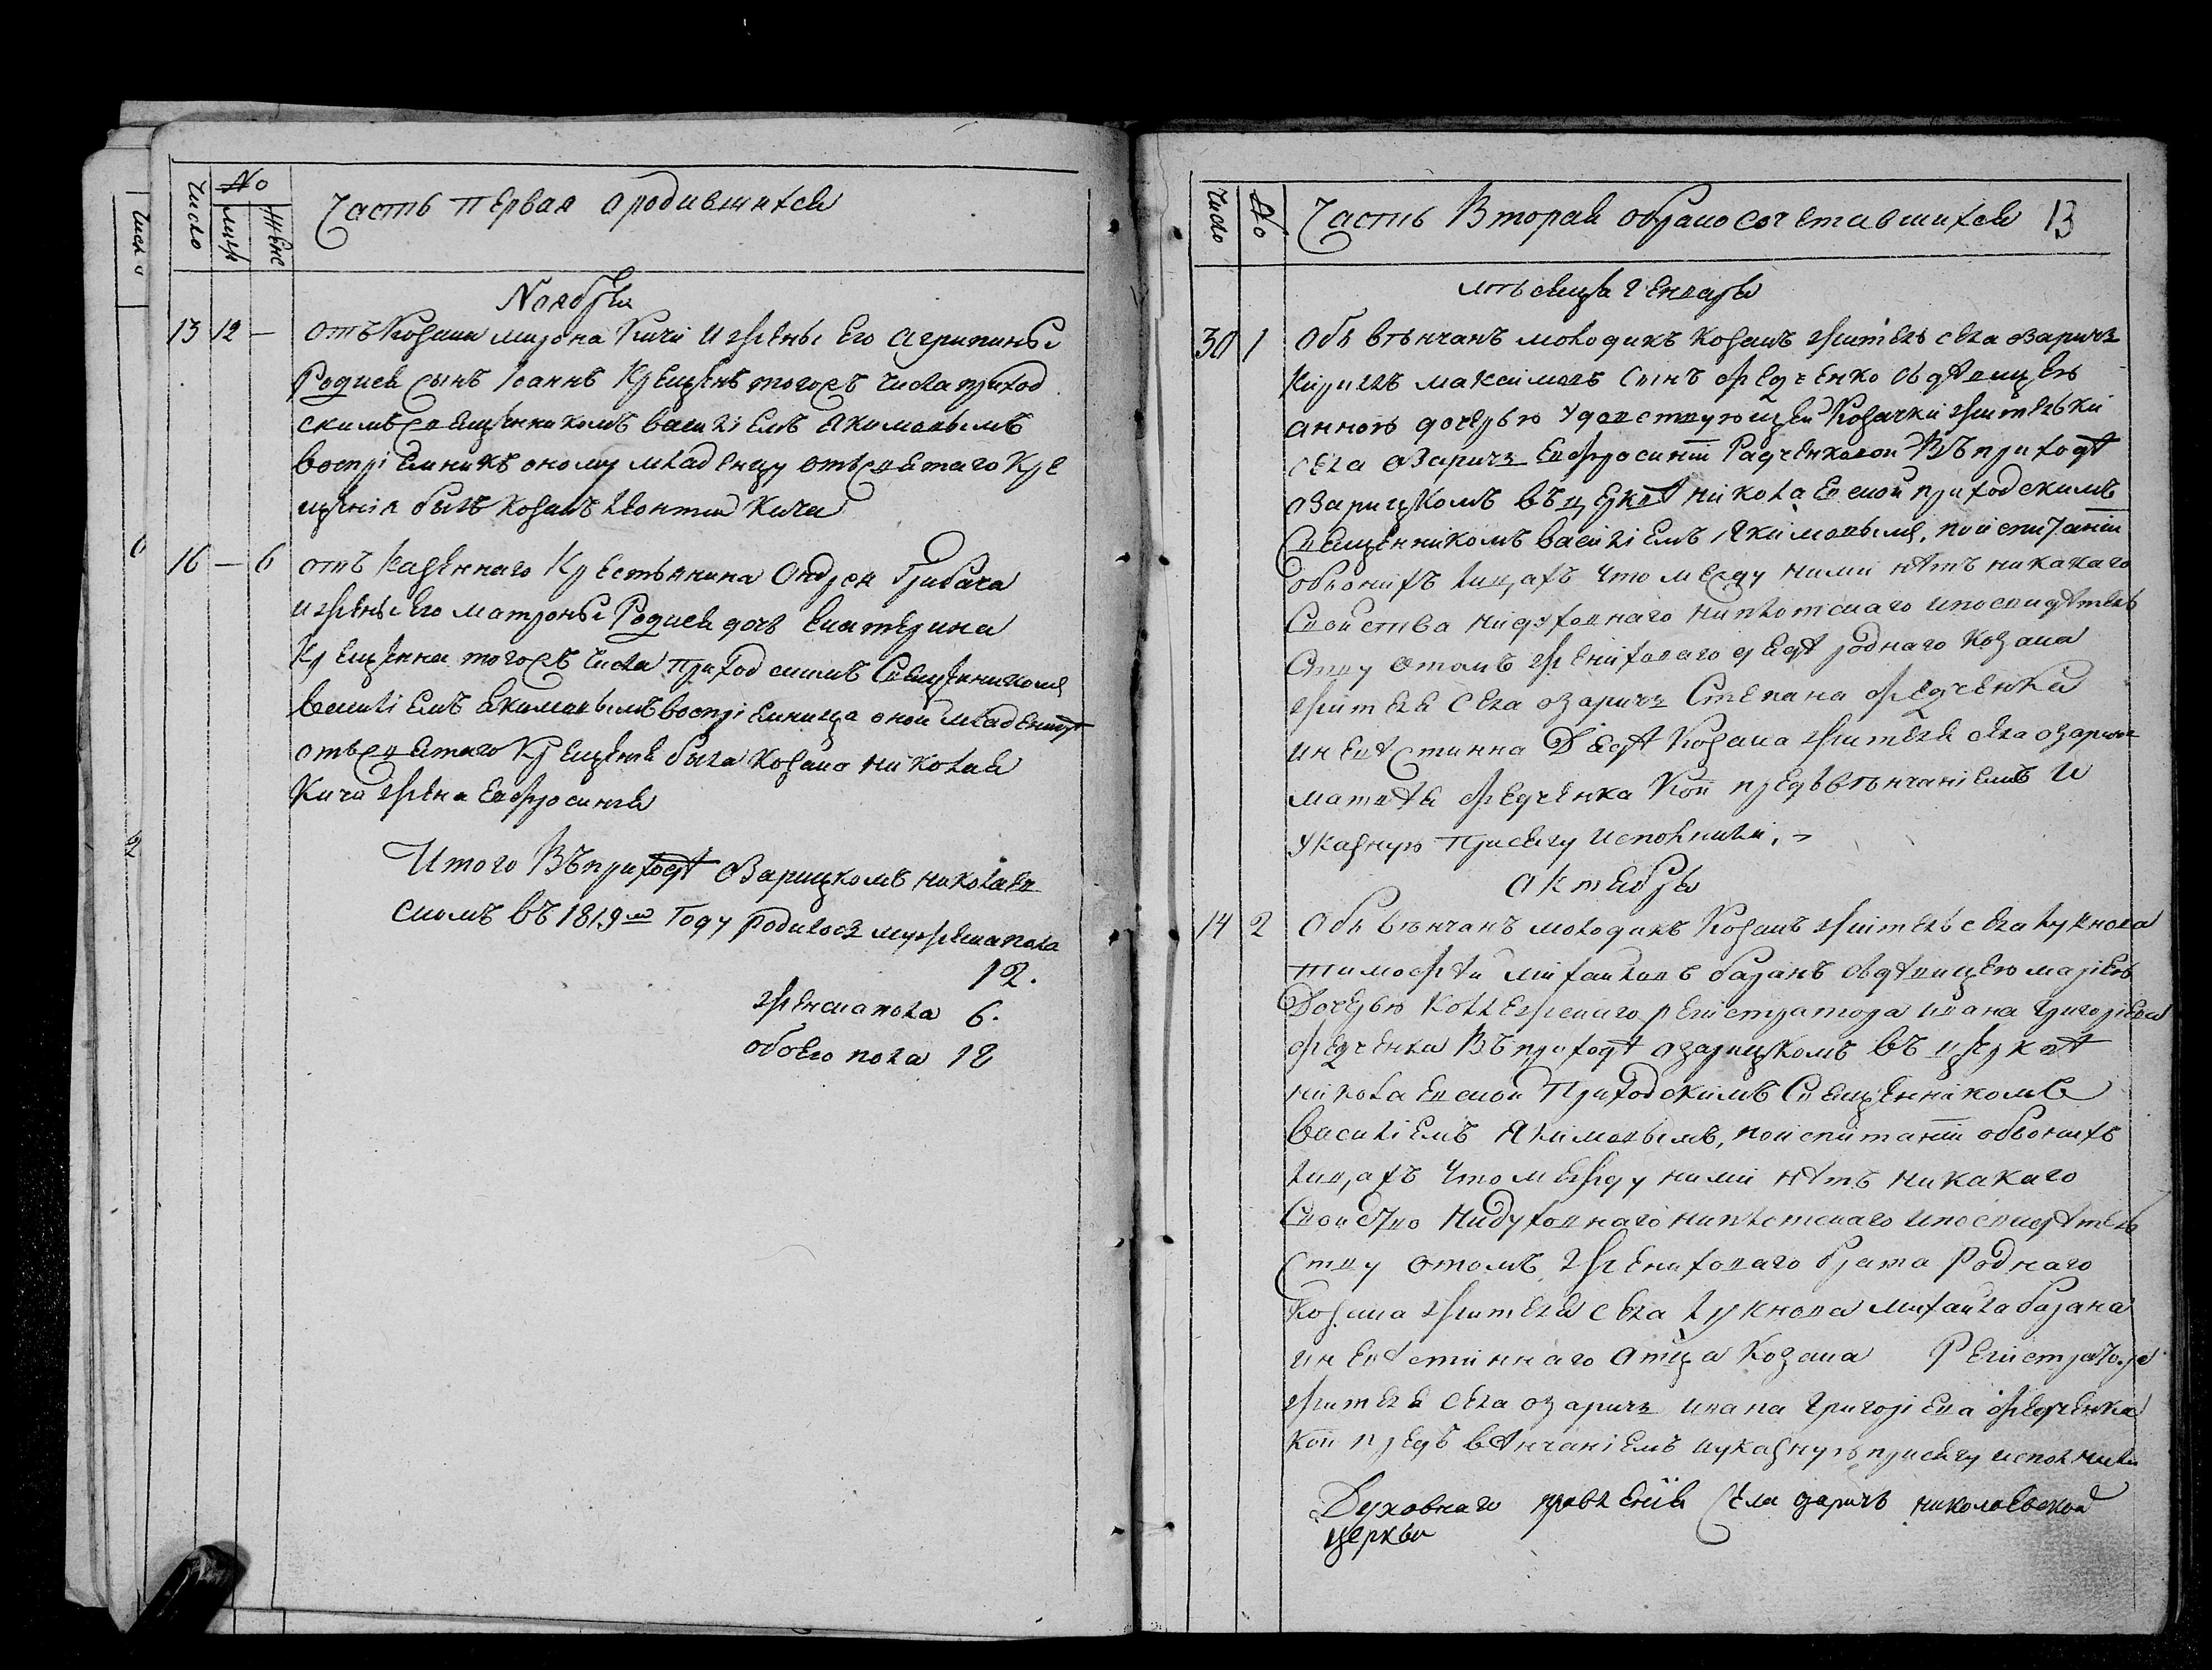 Число
№
муж
Женс
Часть первая о родившихся
Ноября
13 12 — отъ козака мирона Кичи и жены Его агрипины
Родися сынъ Іоаннъ Крещенъ тогожъ числа приход
скимъ священникомъ василіемъ Якимовымъ
воспріемникъ оному младенцу отъ святаго Кре
щенія былъ козакъ Кича
16 — 6 отъ казенного Крестьянина Андрея Грибача
и жены Его матроны Родися дочь Екатерина
Крещенна тогожъ числа приходскимъ Священникомъ
василіемъ Якимовымъ воспріемница оной младеницѣ
отъ святаго Крещенія была козака николая
Кичи жена Евфросинія
Итого Въ приходѣ Озарицкомъ николаев
скомъ въ 1819м году родилось мужеска пола
12.
женска пола 6.
обоего пола 18
Число
№
Часть Вторая о бракосочетавшихся 13
мѣсяца Генваря
30 1 Обвѣнчанъ молодикъ козакъ житель села озаричъ
Кирилъ максимовъ сынъ Федченко съ дѣвицею
анною дочерью удовствующей козачки жительки
села озаричъ Евфросиніи Радченковой Въ приходѣ
озарицкомъ въ церквѣ николаевской приходскимъ
Священникомъ василіемъ Якимовымъ, по испитаніи
обвонихъ лицахъ что между ними нѣтъ никакаго
Свойства ни духовнаго ни плотскаго и по свидѣтель
Ству о томъ женихового дѣда роднаго козака
жителя села озаричъ Степана Федченка
и невѣстинна Дѣда козака жителя села озаричъ
матвѣя Федченка кои предъ вѣнчаніемъ и
указную присягу исполнили,
октября
14 2 Обвѣнчанъ молодикъ козакъ житель села Лукнова
тимофѣй михайловъ базанъ съ дѣвицею маріею
Дочерью коллежскаго регистратора ивана григоріева
Федченка Въ приходѣ озарицкомъ въ церквѣ
николаевской приходскимъ Священникомъ
василіемъ Якимовымъ, по испитаніи обвонихъ
лицахъ что между ними нѣтъ никакаго
Свойство ни духовнаго ни плотскаго и по свидѣтель
ству о томъ, женихового брата роднаго
козака жителя села Лукнова михаила базана
и невѣстиннаго отца козака Регистратора
жителя села озаричъ ивана григоріева Федченка
кои предъ вѣнчаніемъ и указную присягу исполнили
Духовнаго правленія Села озаричъ николаевской
церкви